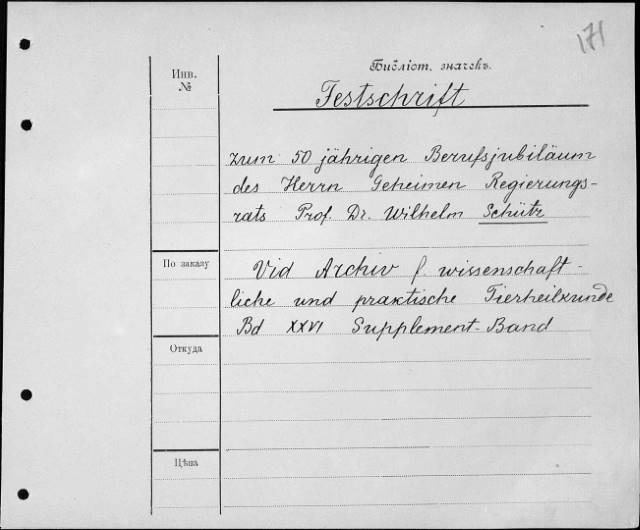 171
Инв.
№
Библіот. значекъ.
Festschrift
zum 50 jährigen Berufsjubiläum
des Herrn Geheimen Regierungs-
rats Prof. Dr. Wilhelm Schütz
По заказу
Vid Archiv f. wissenschaft-
liche und praktische Tierheilkunde
Bd XXVI Supplement-Band
Откуда
Цѣна